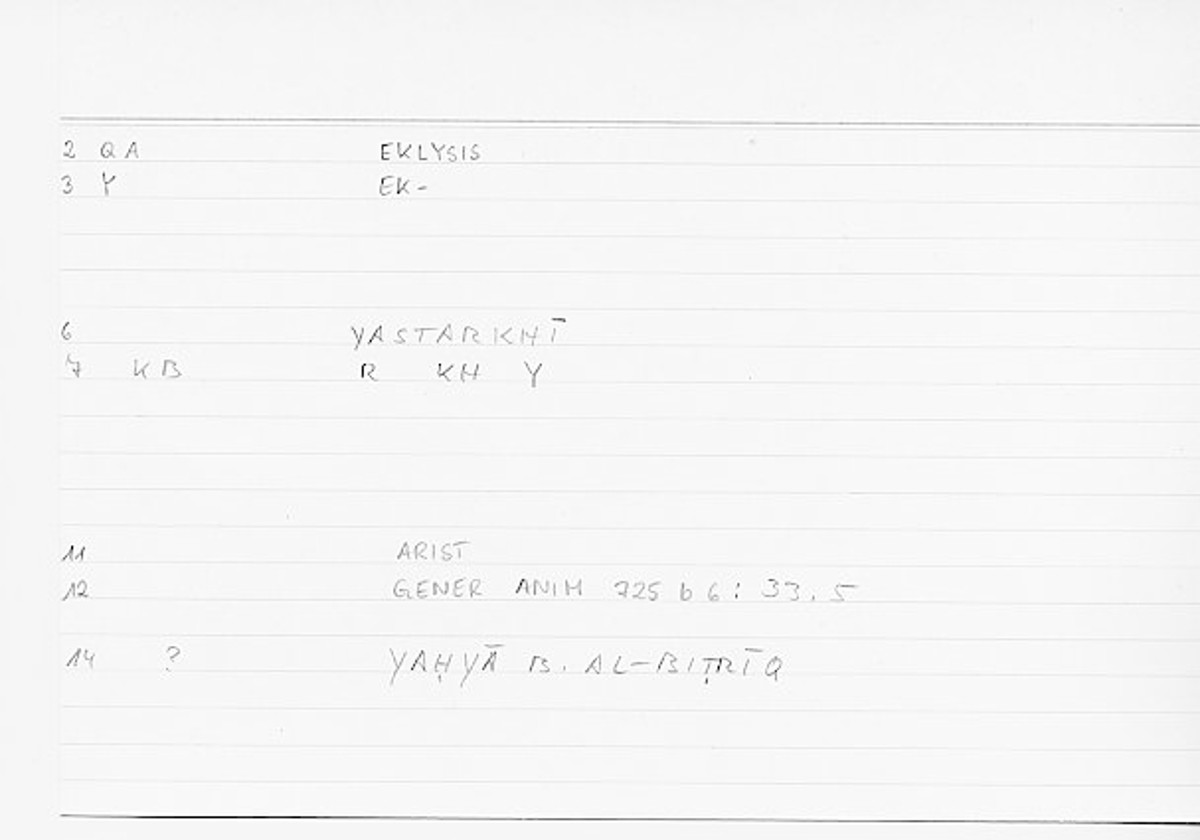 2 QA EKLYSIS
3 Y EK-
6 YASTARKHĪ
7 KB R KH Y
11 ARIST
12 GENER ANIM 725 b 6: 33.5
14 ? YAḤYĀ B. AL-BIṬRĪQ